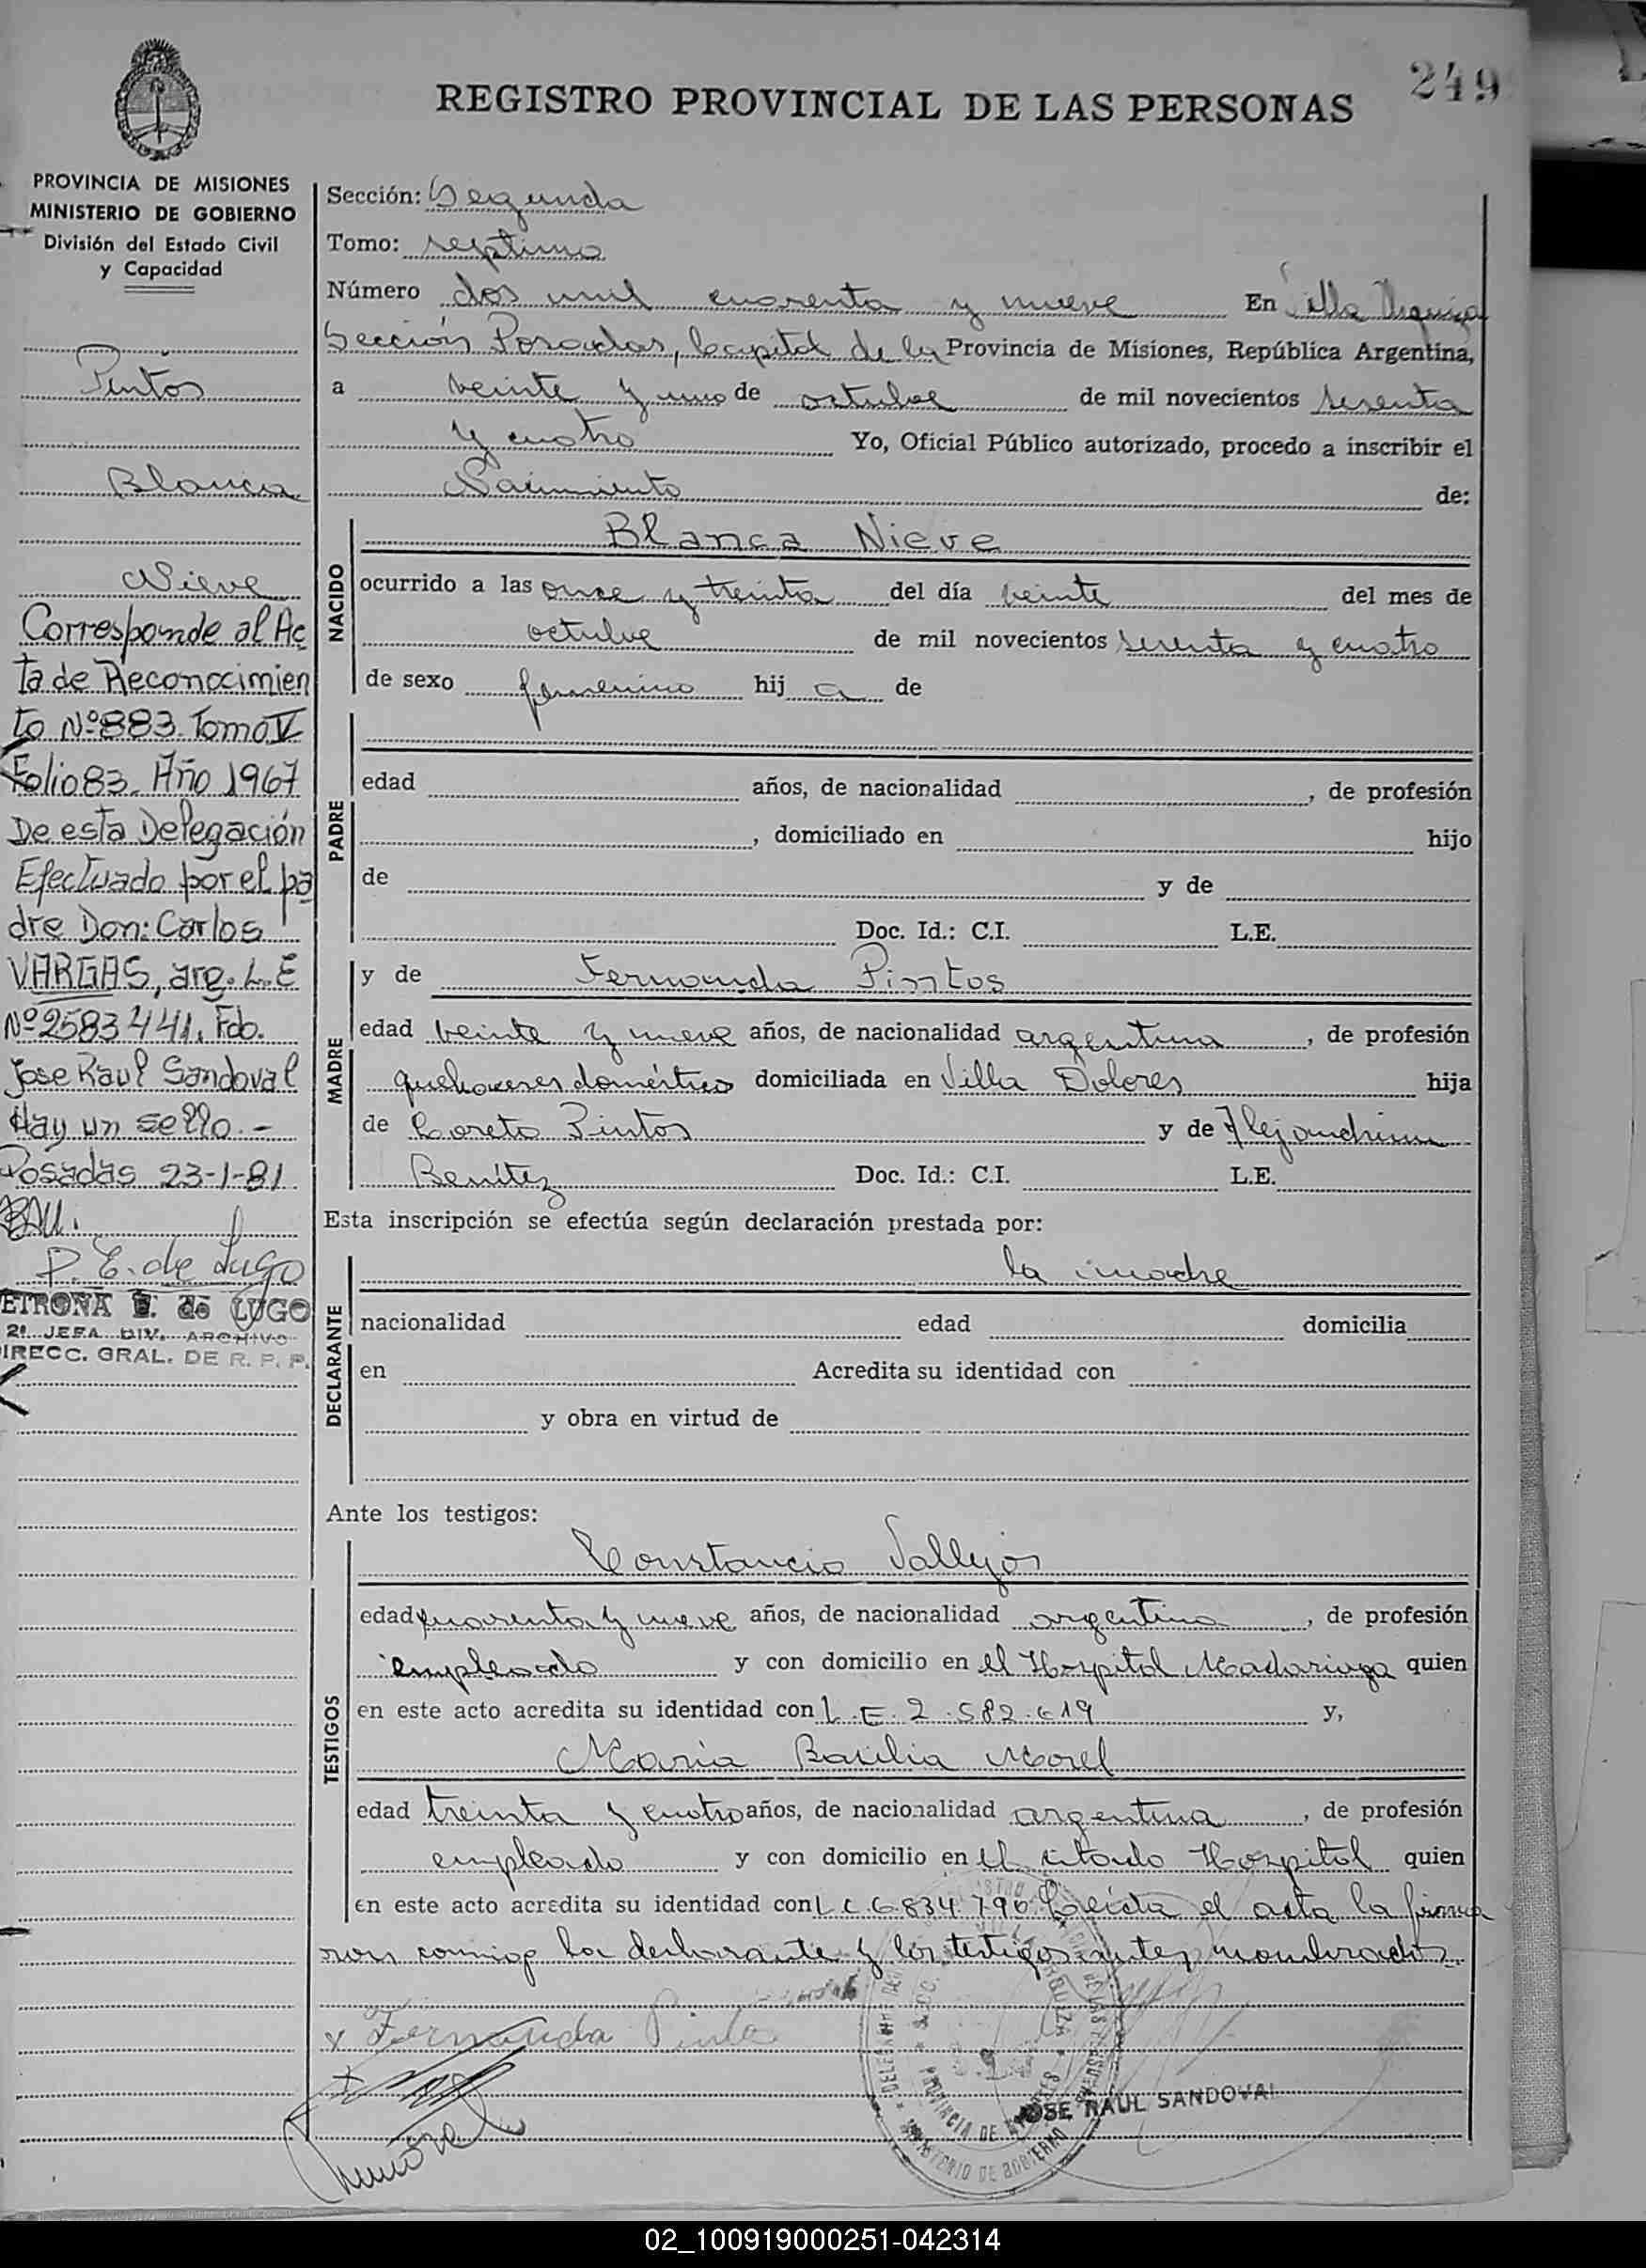 249
REGISTRO PROVINCIAL DE LAS PERSONAS
PROVINCIA DE MISIONES
MINISTERIO DE GOBIERNO
División del Estado Civil
y Capacidad
Pintos
Blanca
Nieve
Corresponde al Ac
ta de Reconocimien
to Nº 883. Tomo V
Folio 83. Año 1967
De esta Delegación
Efectuado por el pa
dre Don: Carlos
VARGAS, arg. L.E
Nº 2583441. Fdo.
Jose Raul Sandoval
Hay un sello.-
Posadas 23-1-81
P. E. de Lugo
ETRONA E. de LUGO
2ª JEFA DIV. ARCHIVO
IRECC. GRAL. DE R. P. P.
Sección: Segunda
Tomo: septimo
Número dos mil cuarenta y nueve En Villa Urquiza
Sección Posadas, Capital de la Provincia de Misiones, República Argentina,
a veinte y uno de octubre de mil novecientos sesenta
y cuatro Yo, Oficial Público autorizado, procedo a inscribir el
Nacimiento de:
NACIDO
Blanca Nieve
ocurrido a las once y treinta del día veinte del mes de
octubre de mil novecientos sesenta y cuatro
de sexo femenino hij a de
PADRE
edad años, de nacionalidad , de profesión
, domiciliado en hijo
de y de
Doc. Id.: C.I. L.E.
MADRE
y de Fernanda Pintos
edad veinte y nueve años, de nacionalidad argentina , de profesión
quehaceres domésticos domiciliada en Villa Dolores hija
de Loreto Pintos y de Alejandrina
Benítez Doc. Id.: C.I. L.E.
Esta inscripción se efectúa según declaración prestada por:
DECLARANTE
la madre
nacionalidad edad domicilia
en Acredita su identidad con
y obra en virtud de
Ante los testigos:
TESTIGOS
Constancio Vallejos
edad cuarenta y nueve años, de nacionalidad argentino , de profesión
empleado y con domicilio en el Hospital Madariaga quien
en este acto acredita su identidad con L.E. 2.582.619 y,
María Basilia Morel
edad treinta y cuatro años, de nacionalidad argentina , de profesión
empleado y con domicilio en el citado Hospital quien
en este acto acredita su identidad con L C 6.834.796 Leída el acta la firma
ron conmigo la declarante y los testigos antes nombrados
x Fernanda Pinto
Morel
JOSE RAUL SANDOVAL
PROVINCIA DE MISIONES
MINISTERIO DE GOBIERNO
02_100919000251-042314